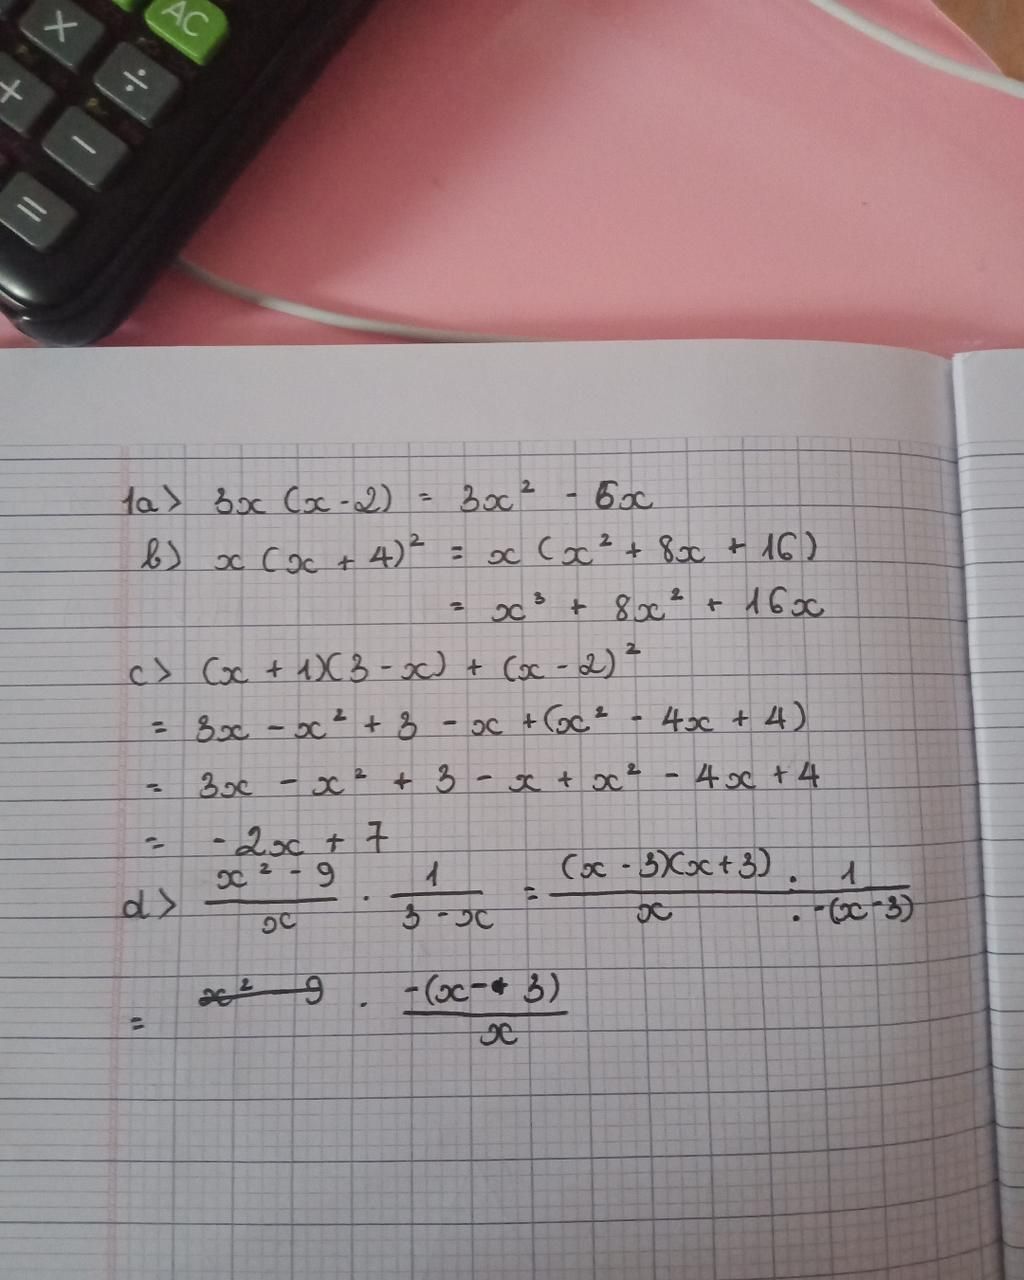 ×
AC
+
÷
−
=
1a> 3x (x - 2) = 3x² - 6x
b) x (x + 4)² = x (x² + 8x + 16)
= x³ + 8x² + 16x
c> (x + 1)(3 - x) + (x - 2)²
= 3x - x² + 3 - x + (x² - 4x + 4)
= 3x - x² + 3 - x + x² - 4x + 4
= -2x + 7
d> (x² - 9)/x · 1/(3 - x) = ((x - 3)(x + 3) · 1)/(x · -(x - 3))
= x² - 9 ·